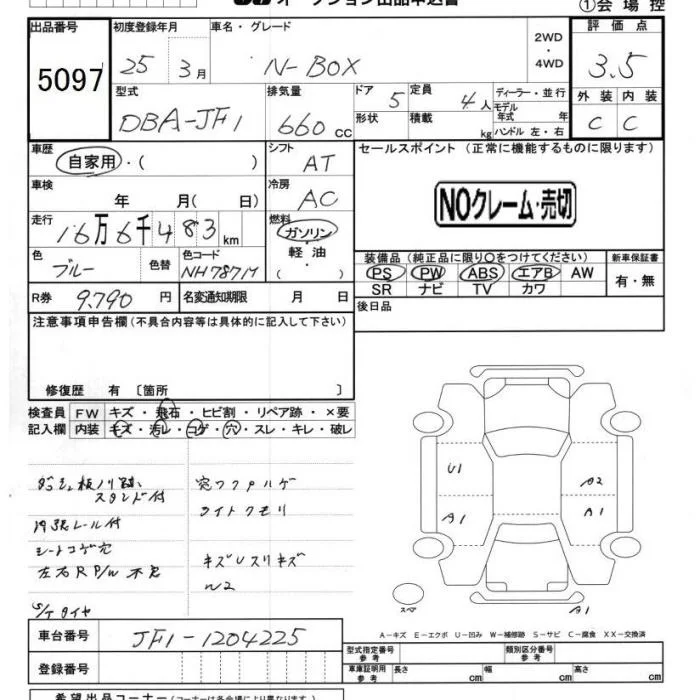 オークション出品申込書
①会場控
出品番号 5097
初度登録年月 25年 3月
車名・グレード N-BOX
2WD・4WD
評価点 3.5
型式 DBA-JF1
排気量 660 cc
ドア 5
形状
定員 4人
積載 kg
ディーラー・並行
モデル年式 年
ハンドル 左・右
外装 C
内装 C
車歴 自家用・( )
シフト AT
セールスポイント (正常に機能するものに限ります)
車検 年 月( 日)
冷房 AC
NOクレーム・売切
走行 16万6千483km
燃料 ガソリン・軽油・( )
色 ブルー
色替
色コード NH787M
装備品 (純正品に限り○をつけてください)
PS PW ABS エアB AW
SR ナビ TV カワ
新車保証書 有・無
R券 9,790円
名変通知期限 月 日
後日品
注意事項申告欄 (不具合内容等は具体的に記入して下さい)
修復歴 有 [箇所 ]
検査員記入欄
FW キズ・飛石・ヒビ割・リペア跡・×要
内装 キズ・汚レ・コゲ・穴・スレ・キレ・破レ
スタンド付
レール付
シートコゲ穴
左右R P/W 不良
S/Tタイヤ
ライトクモリ
キズUスリキズ
U1
A1
A2
A1
A1
スペア
A-キズ E-エクボ U-凹み W-補修跡 S-サビ C-腐食 XX-交換済
車台番号 JF1-1204225
登録番号
型式指定番号 参考
類別区分番号 参考
車庫証明用 参考 長さ cm 幅 cm 高さ cm
希望出品コーナー